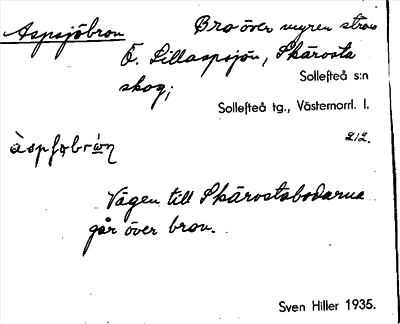 Aspsjöbron Bro över myren strax
Ö. Lillaspsjön, Skärosta
skog;
Sollefteå s:n
Sollefteå tg., Västernorrl. l.
212.
Vägen till Skärostabodarna
går över bron.
Sven Hiller 1935.